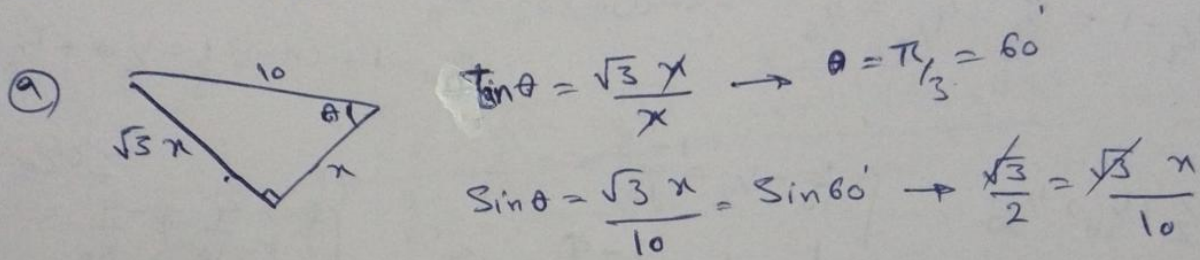 9
10
θ
√3 x
x
Tanθ = √3 x / x → θ = π/3 = 60°
Sinθ = √3 x / 10 = Sin60° → √3 / 2 = √3 x / 10